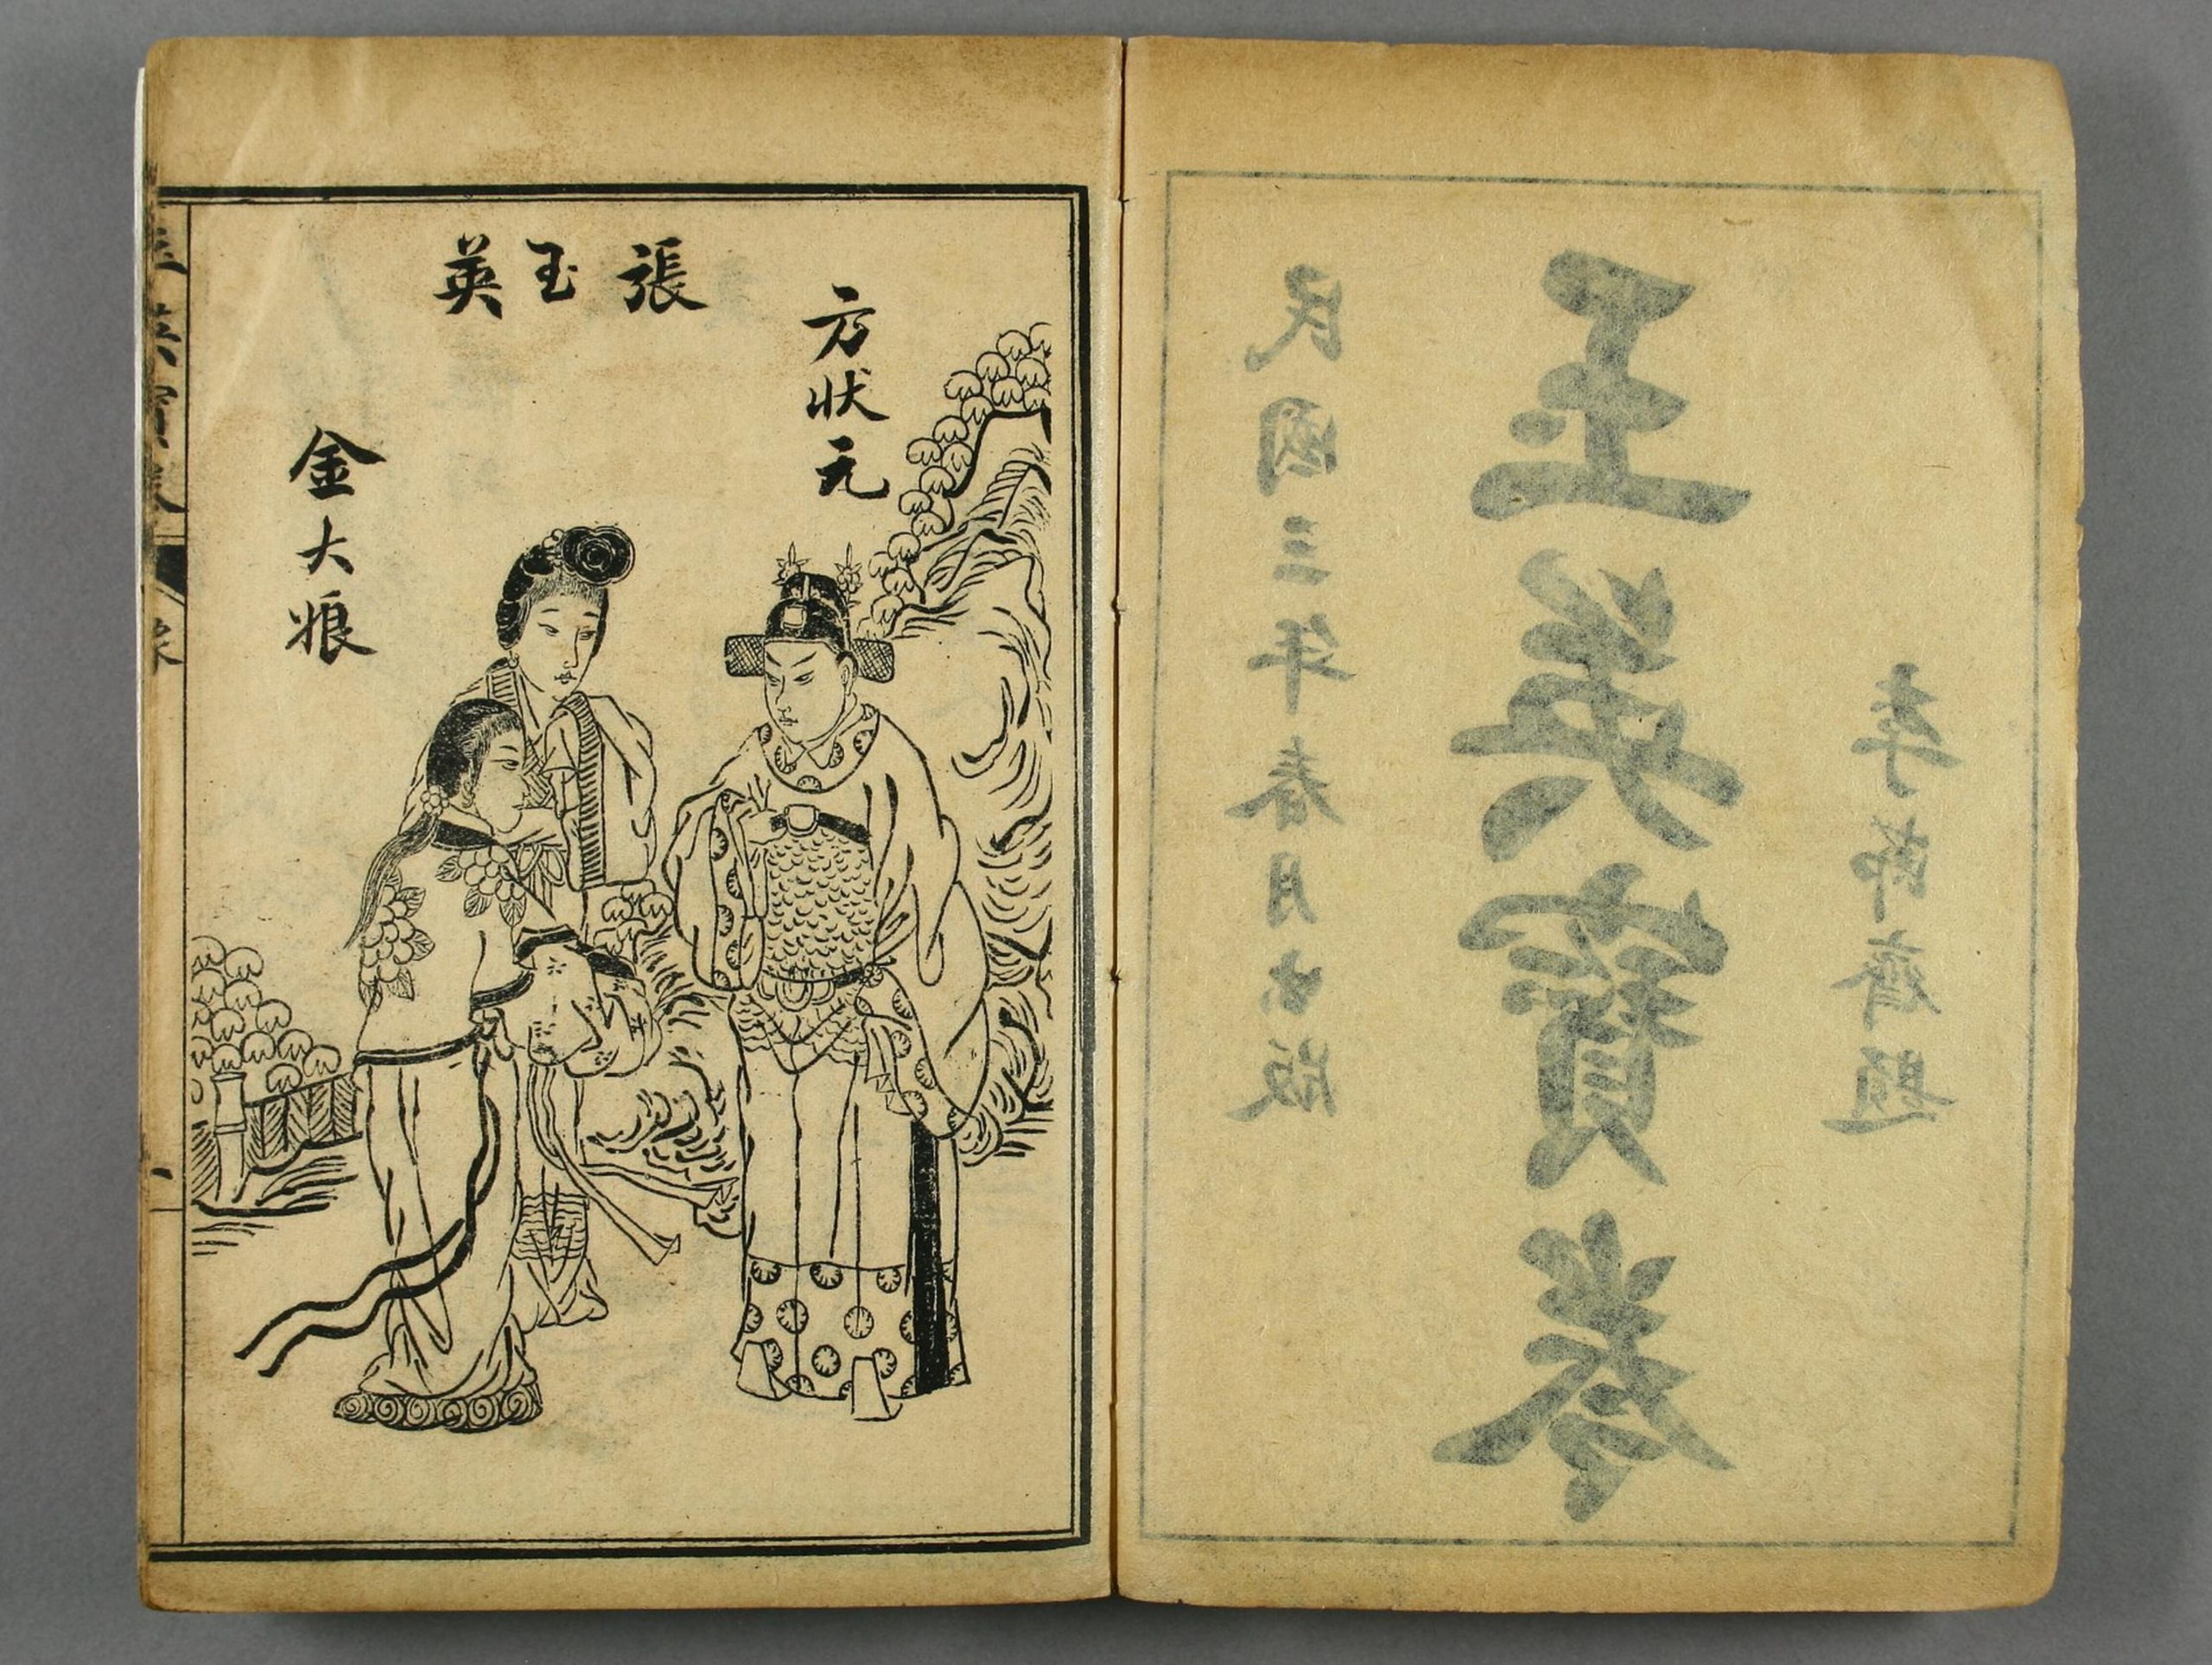 李節齋題
玉英寶卷
民國三年春月出版
方狀元
張玉英
金大娘